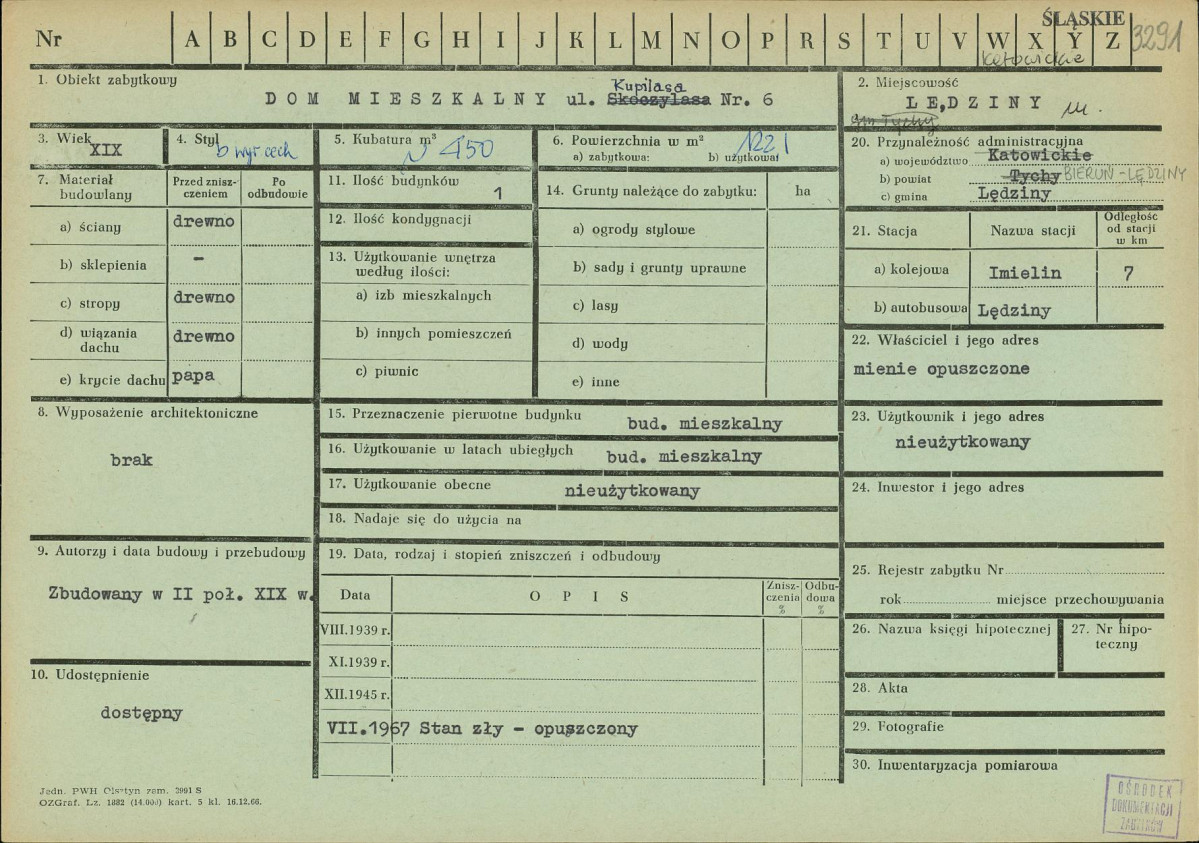 Nr A B C D E F G H I J K L M N O P R S T U V W X Y Z
ŚLĄSKIE
3291
Katowickie
1. Obiekt zabytkowy
Kupilasa
DOM MIESZKALNY ul. Skoczylasa Nr. 6
2. Miejscowość
LĘDZINY m.
gm Tychy
3. Wiek
XIX
4. Styl
5. Kubatura m³
~ 450
6. Powierzchnia w m²
a) zabytkowa: b) użytkowa
7. Materiał budowlany
Przed zniszczeniem
Po odbudowie
a) ściany drewno
b) sklepienia –
c) stropy drewno
d) wiązania dachu drewno
e) krycie dachu papa
8. Wyposażenie architektoniczne
brak
9. Autorzy i data budowy i przebudowy
Zbudowany w II poł. XIX w.
10. Udostępnienie
dostępny
11. Ilość budynków
1
12. Ilość kondygnacji
13. Użytkowanie wnętrza
według ilości:
a) izb mieszkalnych
b) innych pomieszczeń
c) piwnic
14. Grunty należące do zabytku: ha
a) ogrody stylowe
b) sady i grunty uprawne
c) lasy
d) wody
e) inne
15. Przeznaczenie pierwotne budynku bud. mieszkalny
16. Użytkowanie w latach ubiegłych bud. mieszkalny
17. Użytkowanie obecne nieużytkowany
18. Nadaje się do użycia na
19. Data, rodzaj i stopień zniszczeń i odbudowy
Data OPIS Zniszczenia % Odbudowa %
VIII.1939 r.
XI.1939 r.
XII.1945 r.
VII.1967 Stan zły – opuszczony
20. Przynależność administracyjna
a) województwo Katowickie
b) powiat Tychy BIERUŃ-LĘDZINY
c) gmina Lędziny
21. Stacja Nazwa stacji Odległość od stacji w km
a) kolejowa Imielin 7
b) autobusowa Lędziny
22. Właściciel i jego adres
mienie opuszczone
23. Użytkownik i jego adres
nieużytkowany
24. Inwestor i jego adres
25. Rejestr zabytku Nr
rok miejsce przechowywania
26. Nazwa księgi hipotecznej
27. Nr hipo-
teczny
28. Akta
29. Fotografie
30. Inwentaryzacja pomiarowa
Jedn. PWH Olsztyn zam. 3991 S
OZGraf. Lz. 1882 (14.000) kart. 5 kl. 16.12.66.
OŚRODEK
DOKUMENTACJI
ZABYTKÓW